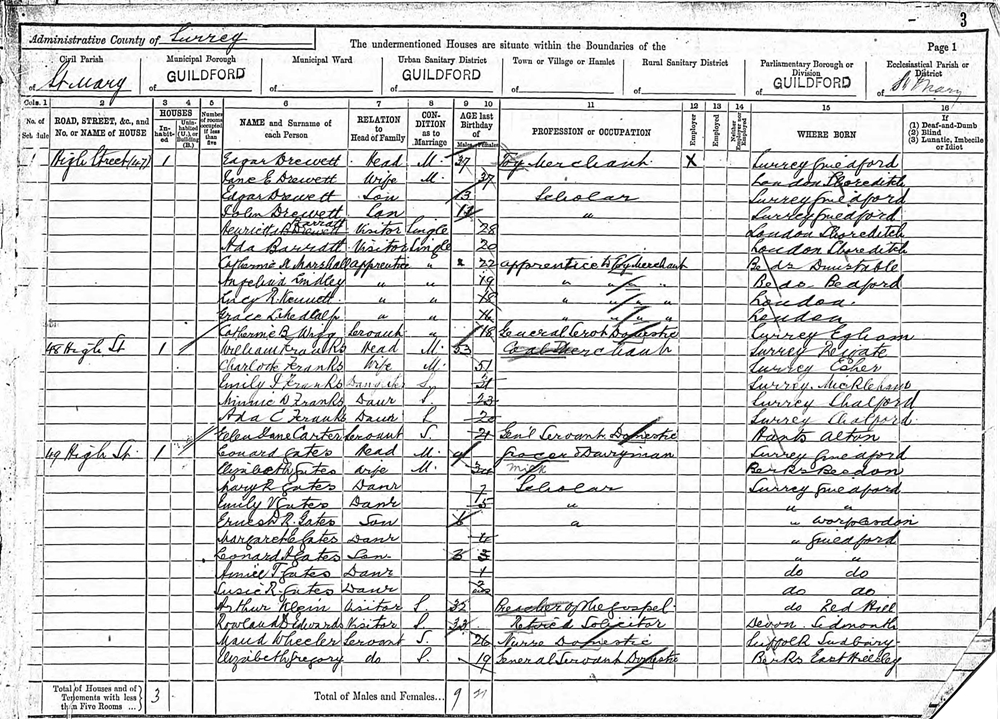 3
Administrative County of Surrey
The undermentioned Houses are situate within the Boundaries of the
Page 1
Civil Parish of St Mary
Municipal Borough of GUILDFORD
Municipal Ward of
Urban Sanitary District of GUILDFORD
Town or Village or Hamlet of
Rural Sanitary District of
Parliamentary Borough or Division of GUILDFORD
Ecclesiastical Parish or District of St Mary
Cols. 1 2 3 4 5 6 7 8 9 10 11 12 13 14 15 16
No. of Schedule
ROAD, STREET, &c., and No. or NAME of HOUSE
HOUSES
Inhabited
Uninhabited (U.), or Building (B.)
Number of rooms occupied if less than five
NAME and Surname of each Person
RELATION to Head of Family
CONDITION as to Marriage
AGE last Birthday of
Males
Females
PROFESSION or OCCUPATION
Employer
Employed
Neither Employer nor Employed
WHERE BORN
If (1) Deaf-and-Dumb (2) Blind (3) Lunatic, Imbecile or Idiot
1 High Street (47) 1 Edgar Drewett Head M. 37 Toy Merchant X Surrey Guildford
Jane E Drewett Wife M. 37 London Shoreditch
Edgar Drewett Son 13 Scholar Surrey Guildford
John Drewett Son " Surrey Guildford
Barratt Visitor Single 28 London Shoreditch
Ada Barratt Visitor Single 20 London Shoreditch
Catherine Marshall Apprentice " 22 Apprentice to Toy Merchant Beds Dunstable
Angelina Lindley " " 19 " " " Beds Bedford
Lucy R. Kennett " " 18 " " " London
Grace " " 16 " " " London
Catherine B. Wrigg Servant " 18 General Servt Domestic Surrey Egham
48 High St 1 William Franks Head M. 53 Coal Merchant Surrey Reigate
Charlotte Franks Wife M. 51 Surrey Esher
Emily J Franks Daughter S. Surrey Mickleham
Minnie D Franks Daur S. 23 Surrey Shalford
Ada C Franks Daur S. 20 Surrey Shalford
Ellen Jane Carter Servant S. 21 Genl Servant Domestic Hants Alton
49 High St 1 Leonard Gates Head M. Grocer & Dairyman Surrey Guildford
Elizabeth Gates Wife M. Milk Berks Beedon
Mary R Gates Daur 7 Scholar Surrey Guildford
Emily V Gates Daur 5 " " "
Ernest R. Gates Son 6 " "
Margaret E Gates Daur " Guildford
Leonard A Gates Son 3 " "
Annie T Gates Daur 1 do do
Susie R. Gates Daur do do
Arthur Klein Visitor S. 32 Preacher of the Gospel do Red Hill
Rowland D Edwards Visitor S. 33 Retired Solicitor Devon Sidmouth
Maud Wheeler Servant S. 26 Nurse Domestic Suffolk Sudbury
Elizabeth Gregory do S. 19 General Servant Domestic Berks East Ilsley
Total of Houses and of Tenements with less than Five Rooms ... 3
Total of Males and Females... 9 21